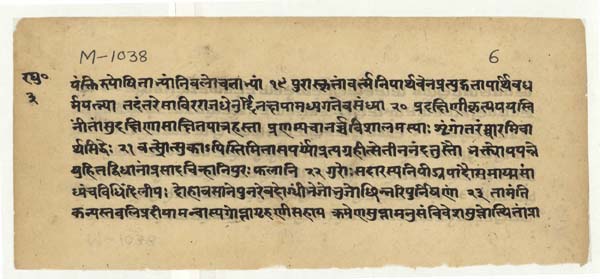 M-1038
6
रघु०
३
पंक्तिरुपोषिताभ्यांनिवलोचनाभ्यां १९ पुरास्कृतावर्त्मनिपार्थवेनप्रत्युद्गतापार्थिवध
र्मपत्न्या तदंतरेसाविरराजधेनुर्दिनक्षपामध्यगतेवसंध्या २० प्रदक्षिणीकृत्यपयस्वि
नींतांसुदक्षिणासाक्षितपात्रहस्ता प्रणम्यचानर्चविशालमस्याः शृंगांतरंद्वारमिवा
र्थसिद्धेः २१ वत्सोत्सुकाऽपिस्तिमितासपर्यांप्रत्यग्रहीत्सेतिननंदतुस्तौ भक्त्योपपन्ने
षुहितद्विधानांप्रसादचिन्हानिपुरःफलानि २२ गुरोःसदारस्यनिपीड्यपादौसमाप्यसां
ध्यंचविधिंदिलीपः दोहावसानेपुनरेवदोग्ध्रींभेजेभुजोच्छिन्नरिपुर्निषण्णां २३ तामंति
कन्यस्तबलिप्रदीपामन्वास्यगोप्तागृहणीसहायः क्रमेणसुप्तामनुसंविवेशसुप्तोत्थितांप्रा